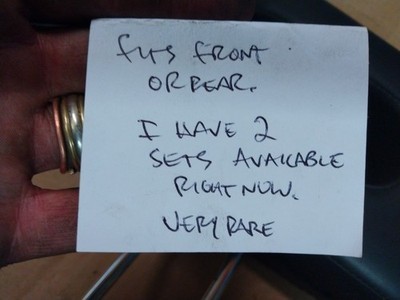 fits front
or rear.
I have 2
sets available
right now.
very rare